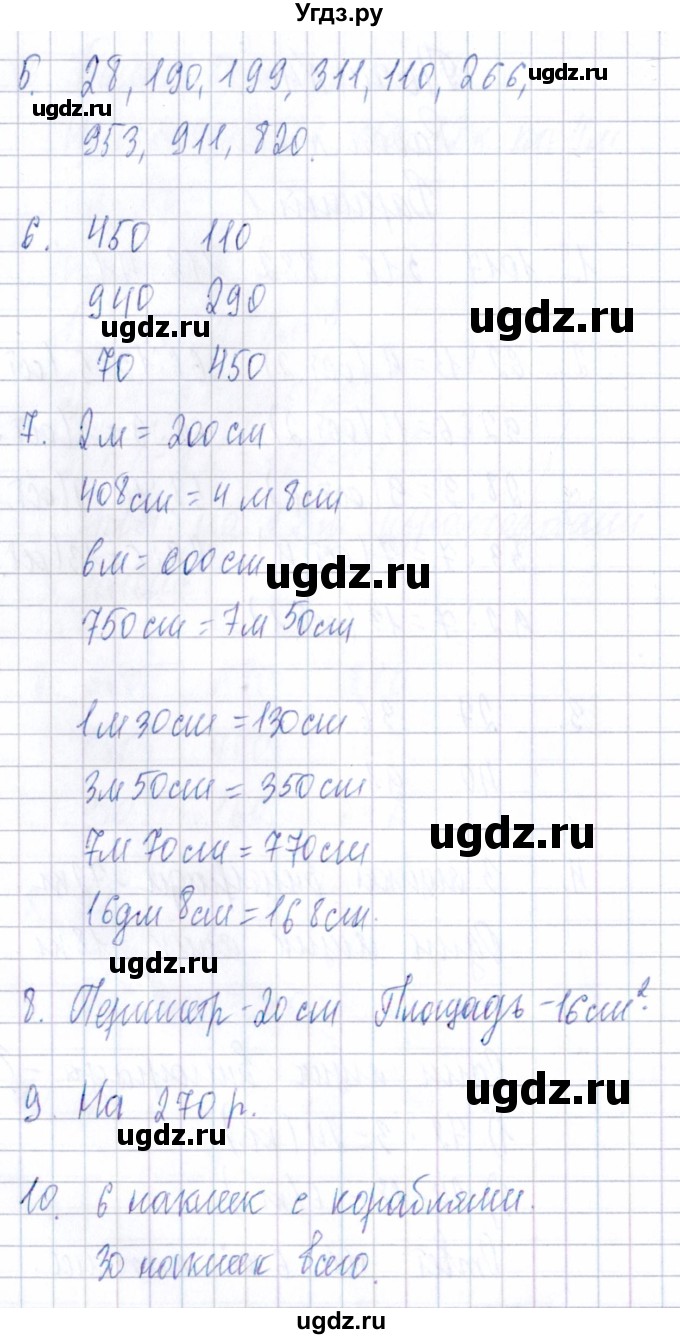 Угдз.ру
5. 28, 190, 199, 311, 110, 266,
ugdz.ru
ugdz.ru
953, 911, 820.
6. 450 110
940 290
ugdz.ru
ugdz.ru
70 450
7. 2м = 200см
408см = 4м 8см
6м = 600см
ugdz.ru
750см = 7м 50см
1м 30см = 130см
3м 50см = 350см
ugdz.ru
7м 70см = 770см
16дм 8см = 168см.
ugdz.ru
8. Периметр - 20 см Площадь - 16 см².
ugdz.ru
9. На 270 р.
ugdz.ru
10. 6 наклеек с кораблями.
30 наклеек всего.
ugdz.ru
ugdz.ru